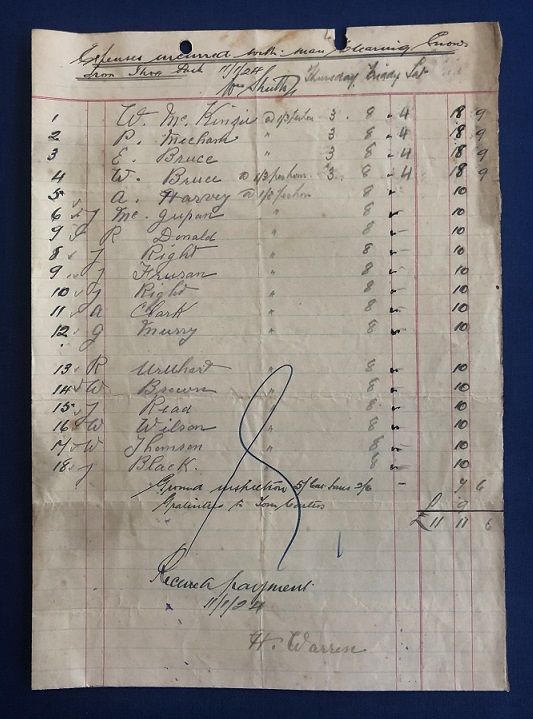 Expenses incurred with men Clearing Snow
from Park 11/1/24
Thursday, Friday Sat
1 W. Mc. Kingie @ 1/3 per hour 3. 8 - 4 18 9
2 P. Mecham " 3 8 - 4 18 9
3 E. Bruce " 3 8 - 4 18 9
4 W. Bruce @ 1/3 per hour 3. 8 - 4 18 9
5 A. Harvey @ 1/3 per hour 8 10
6 J Mc. " 8 10
9 R Donald 8 10
8 J Right " 8 10
9 J " 8 10
10 J Right " 8 10
11 A Clark " 8 10
12 J Murry 8 10
13 R Urquhart " 8 10
14 W Brown " 8 10
15 J Read " 8 10
16 W Wilson " 8 10
17 W Thomson 8 10
18 J Black. 8 10
Ground inspection 5/ 2/6 - 7 6
Gratuities to 9
£11 11 6
Received payment
11/1/24
H. Warren